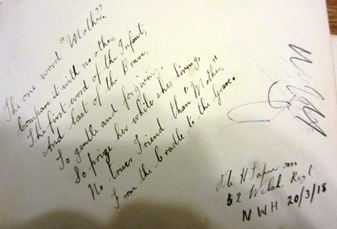 The one word "Mother"
Compare it with no other,
The first word of the Infant,
And last of the Brave.
So gentle and forgiving,
So prize her while she's living,
No truer Friend than "Mother,"
From the Cradle to the Grave.
Pte H
52 Welch Regt
NWH 20/3/18